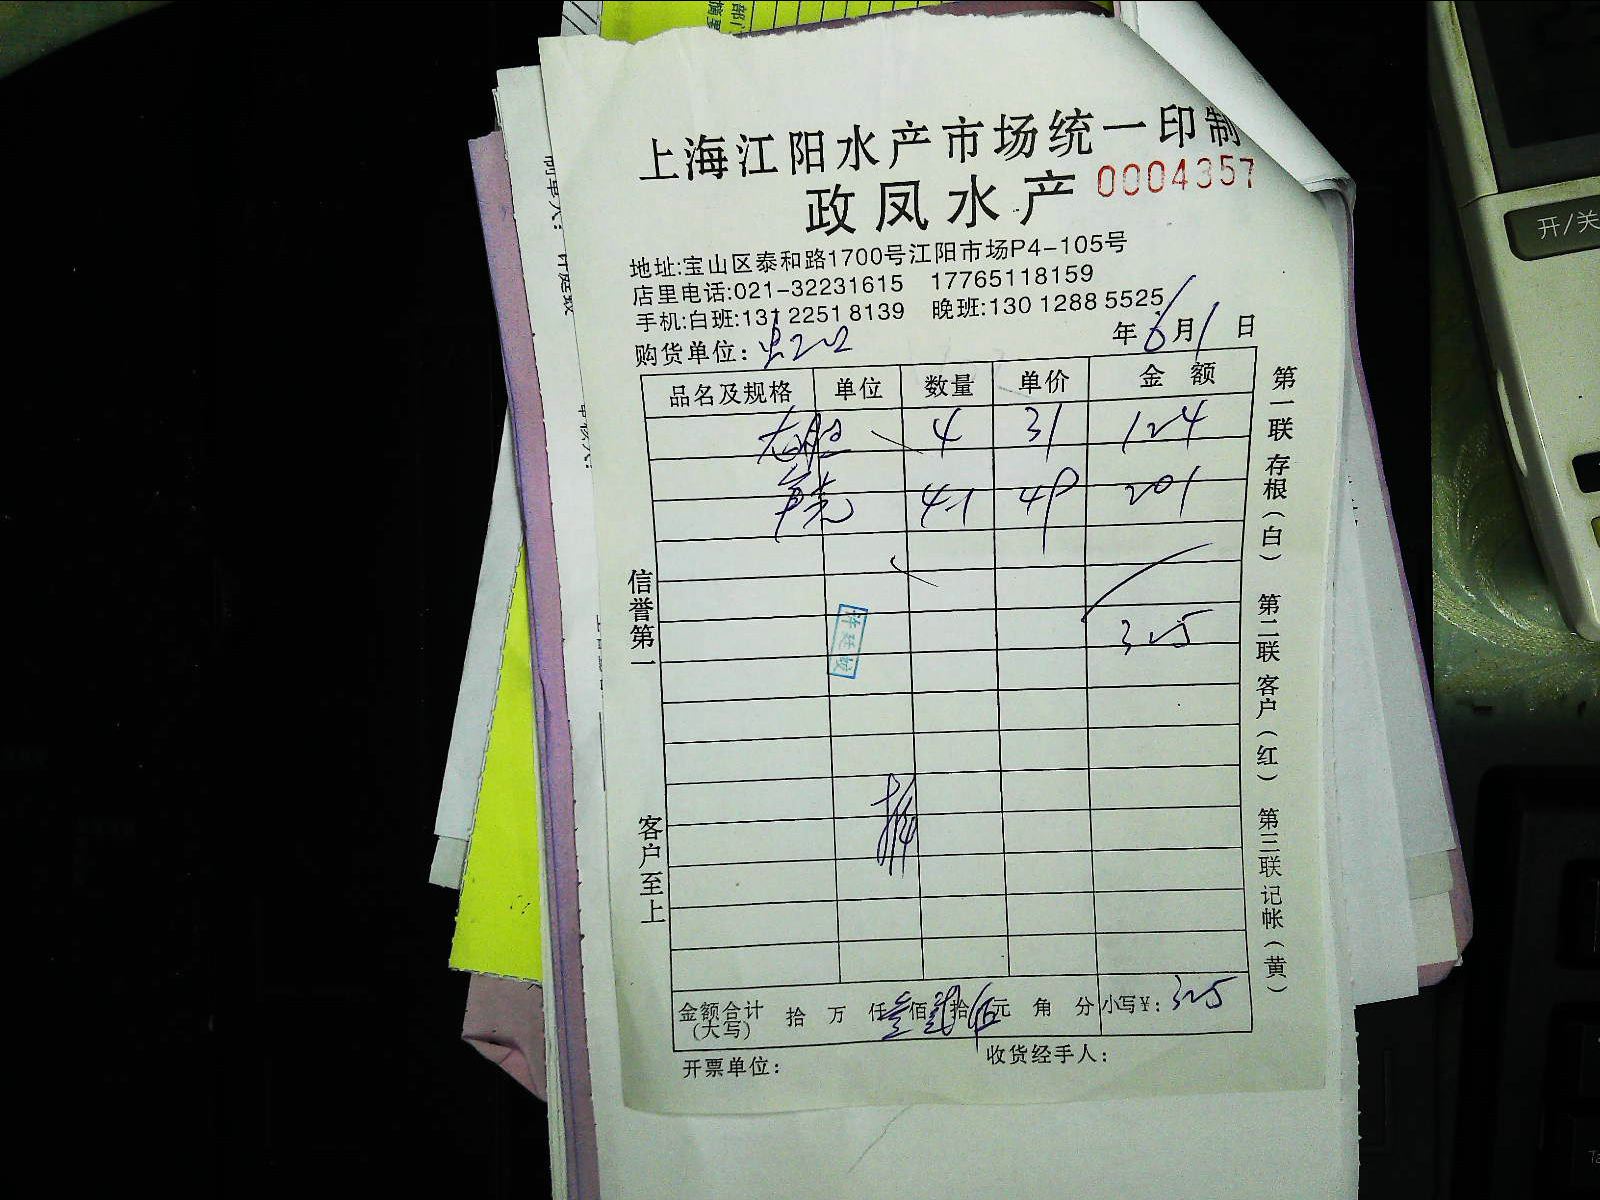 上海江阳水产市场统一印制
政凤水产 0004357
地址:宝山区泰和路1700号江阳市场P4-105号
店里电话:021-32231615 17765118159
手机:白班:131 2251 8139 晚班:130 1288 5525
购货单位: 年 6 月 1 日
品名及规格 单位 数量 单价 金额
4 31 124
4.1 49 201
325
金额合计(大写) 拾 万 仟 叁 佰 贰 拾 伍 元 角 分 小写¥: 325
开票单位: 收货经手人:
信誉第一
客户至上
第一联 存根(白) 第二联 客户(红) 第三联 记帐(黄)
开/关